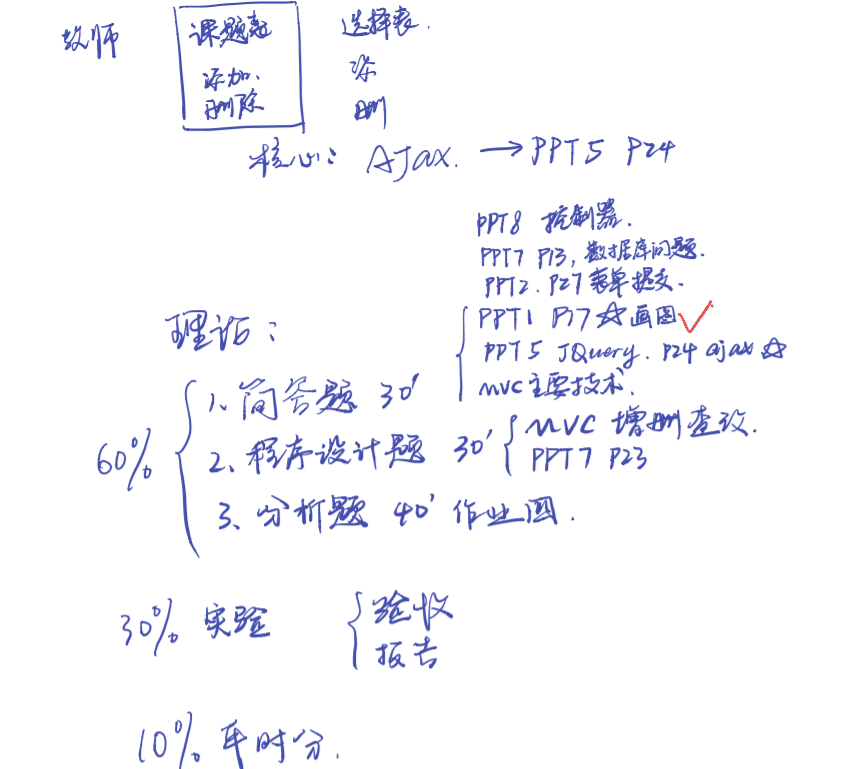 教师 课题表 选择表.
添加、 添
删除 删
核心： AJax. →PPT5 P24
PPT8 控制器.
PPT7 P13, 数据库问题.
PPT2. P27 表单提交.
理论： PPT1 P17 ☆画图✓
PPT5 JQuery. P24 ajax ☆
MVC主要技术.
60% 1、简答题 30'
2、程序设计题 30' MVC 增删查改.
PPT7 P23
3、分析题 40' 作业图.
30% 实验 验收
报告
10% 平时分.